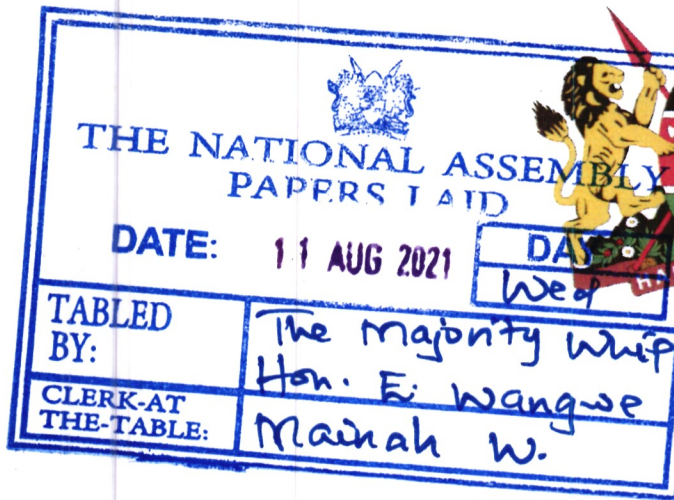 THE NATIONAL ASSEMBLY
PAPERS LAID
DATE: 11 AUG 2021 DAY
Wed
TABLED BY: The Majority Whip
Hon. E. Wangwe
CLERK-AT THE-TABLE: Mainah W.